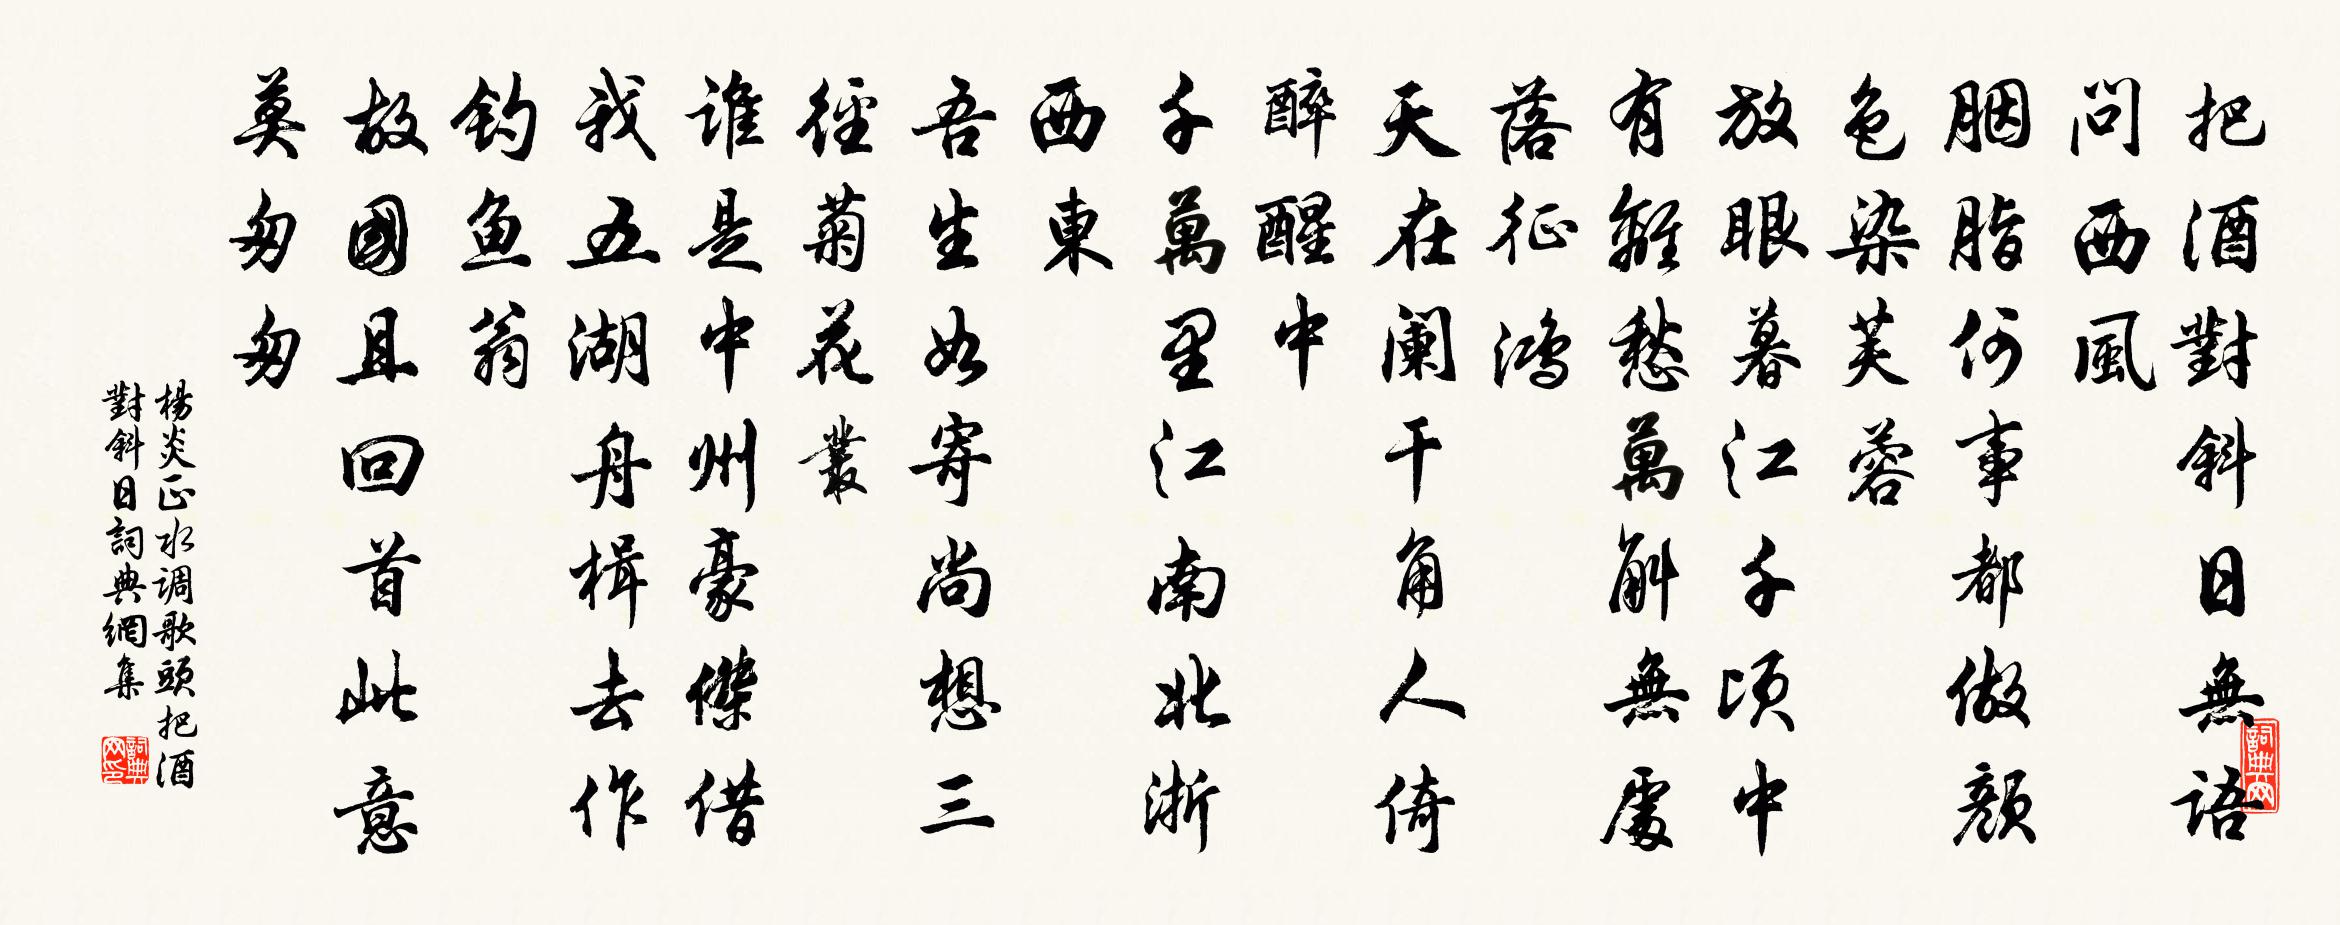 把酒對斜日無語
問西風
胭脂何事都做顏
色染芙蓉
放眼暮江千頃中
有離愁萬斛無處
落征鴻
天在闌干角人倚
醉醒中
千萬里江南北浙
西東
吾生如寄尚想三
徑菊花叢
谁是中州豪傑借
我五湖舟楫去作
釣鱼翁
故國且回首此意
莫匆匆
楊炎正水调歌頭把酒
對斜日詞典網集
詞典網
詞典網印